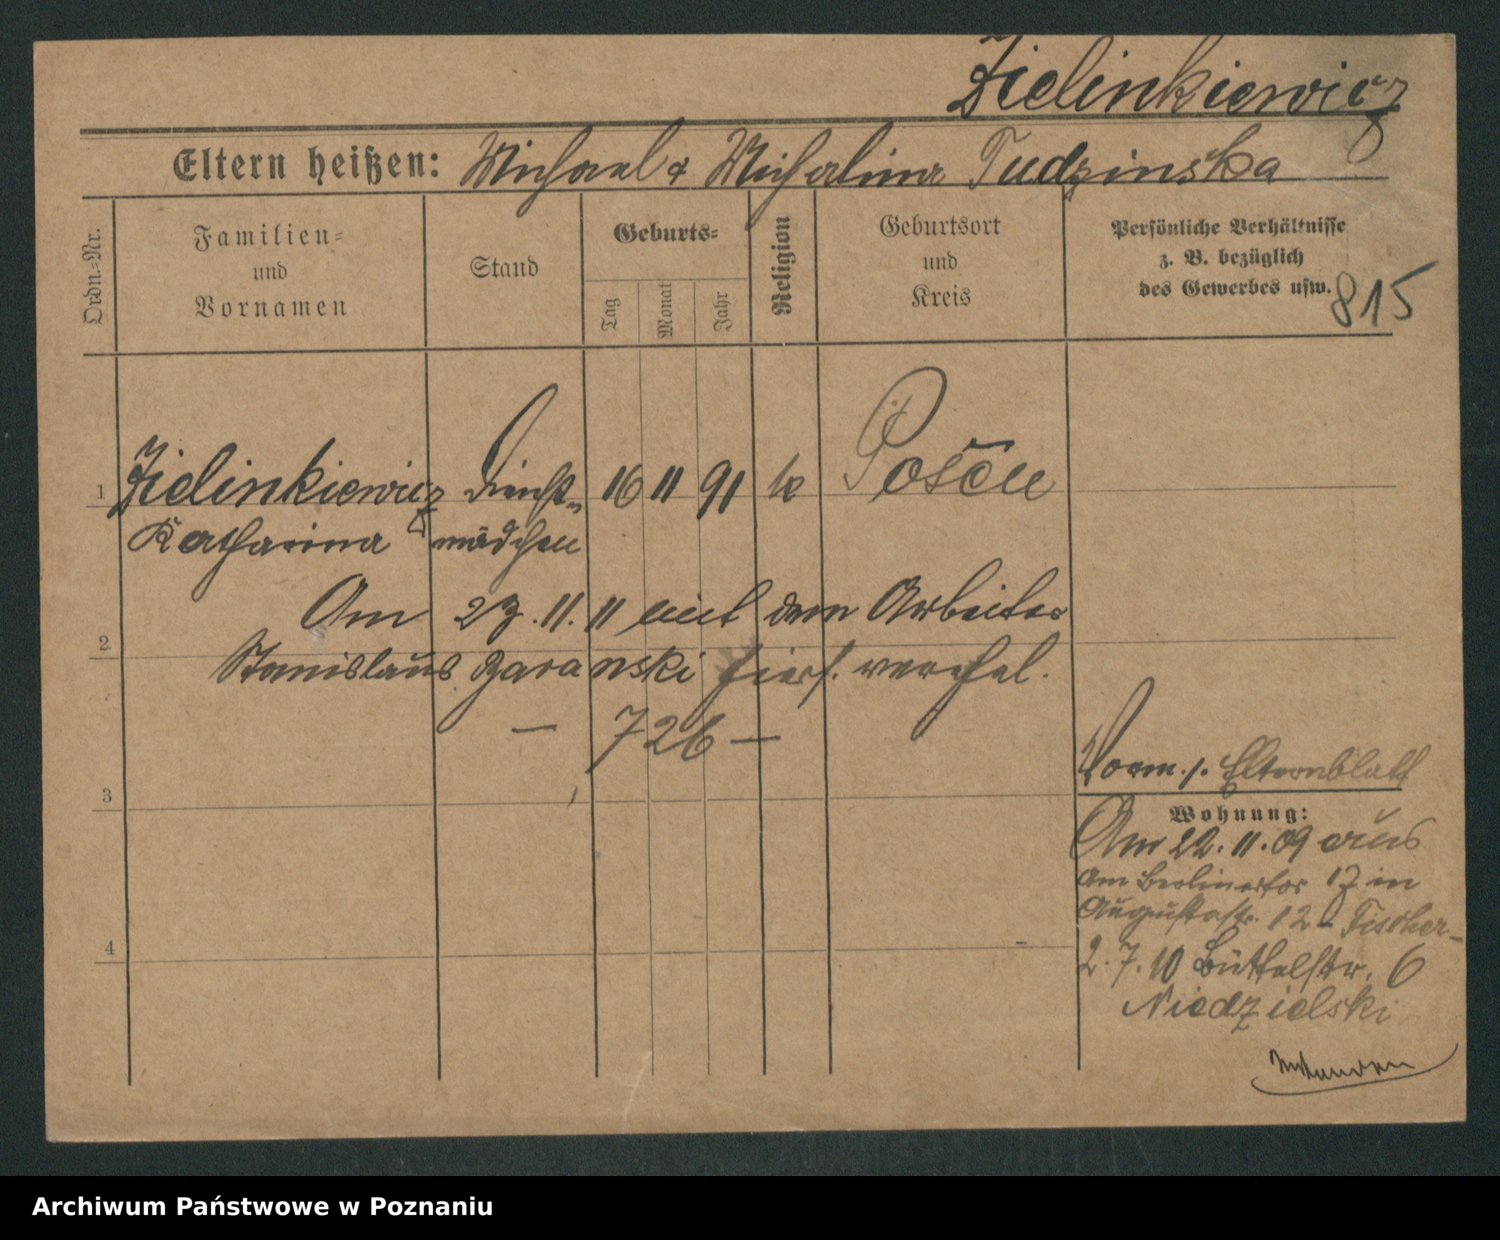 Zielinkiewicz
Eltern heißen: Michael & Michalina Tudzinska
Ordn.=Nr.
Familien=
und
Vornamen
Stand
Geburts=
Tag
Monat
Jahr
Religion
Geburtsort
und
Kreis
Persönliche Verhältnisse
z. B. bezüglich
des Gewerbes usw.
815
1 Zielinkiewicz Dienst= 16 11 91 k Posen
Katharina mädchen
Am 23.11.11 mit dem Arbeiter
2
Stanislaus Zaranski hier verehel.
— 726 —
3
4
Vorm. s. Elternblatt
Wohnung:
Am 22.11.09 aus
Am Berlinertor 17 in
Augustastr. 12 - Fischer-
2.7.10 Büttelstr. 6
Niedzielski
Archiwum Państwowe w Poznaniu